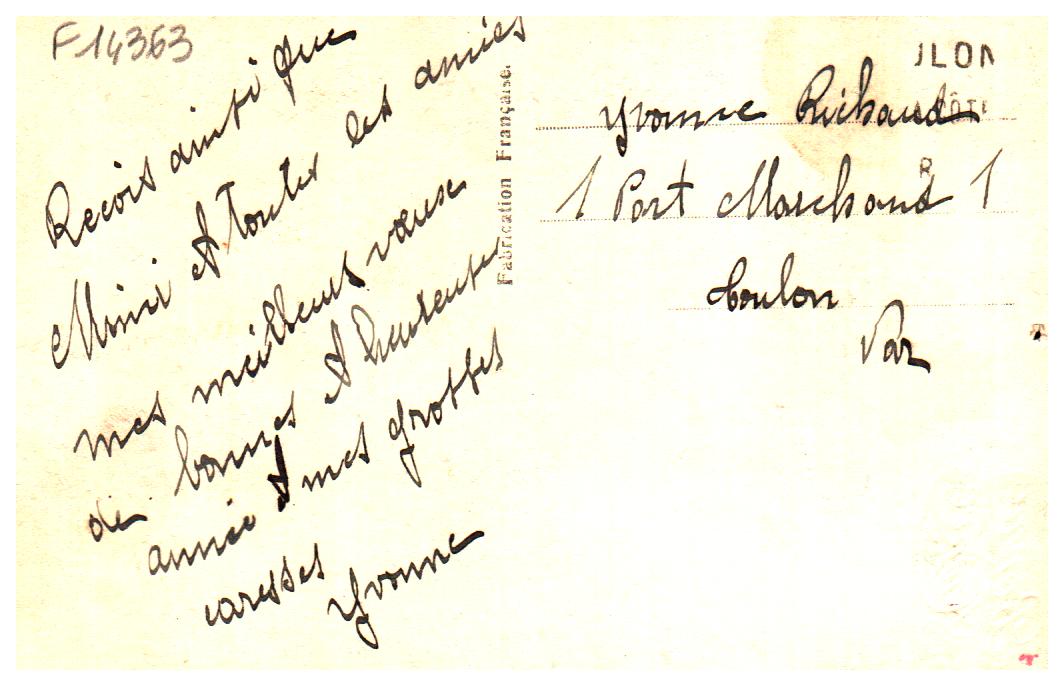 F14363
Recois ainsi que
Mimi et toutes les amies
mes meilleurs vœux
de bonnes et heureuses
année et mes grosses
caresses
Yvonne
Fabrication Française.
Yvonne Richaud
1 Port Marchand 1
Toulon
Var